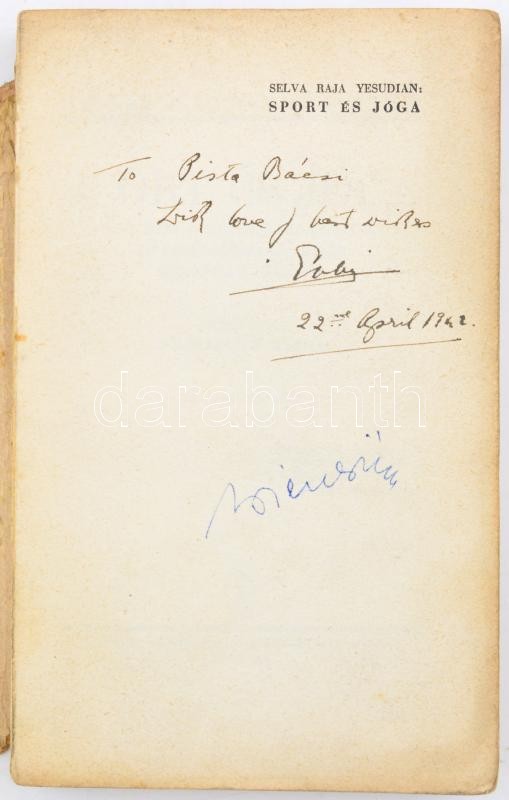 SELVA RAJA YESUDIAN:
SPORT ÉS JÓGA
To Pista Bácsi
With love & best wishes
22nd April 1942.
darabanth